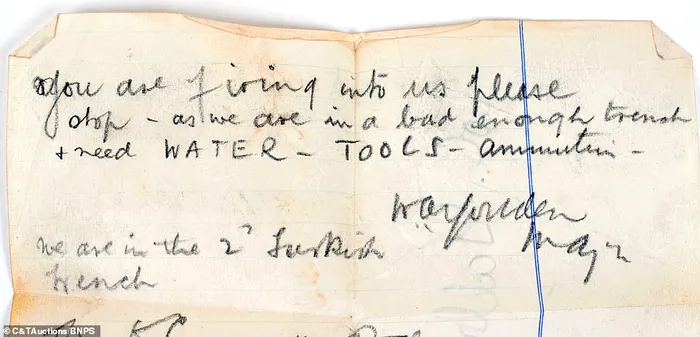 You are firing into us please
stop - as we are in a bad enough trench
+ need WATER - TOOLS - ammunition -
Major
We are in the 2nd Turkish
trench
© C&TAuctions BNPS